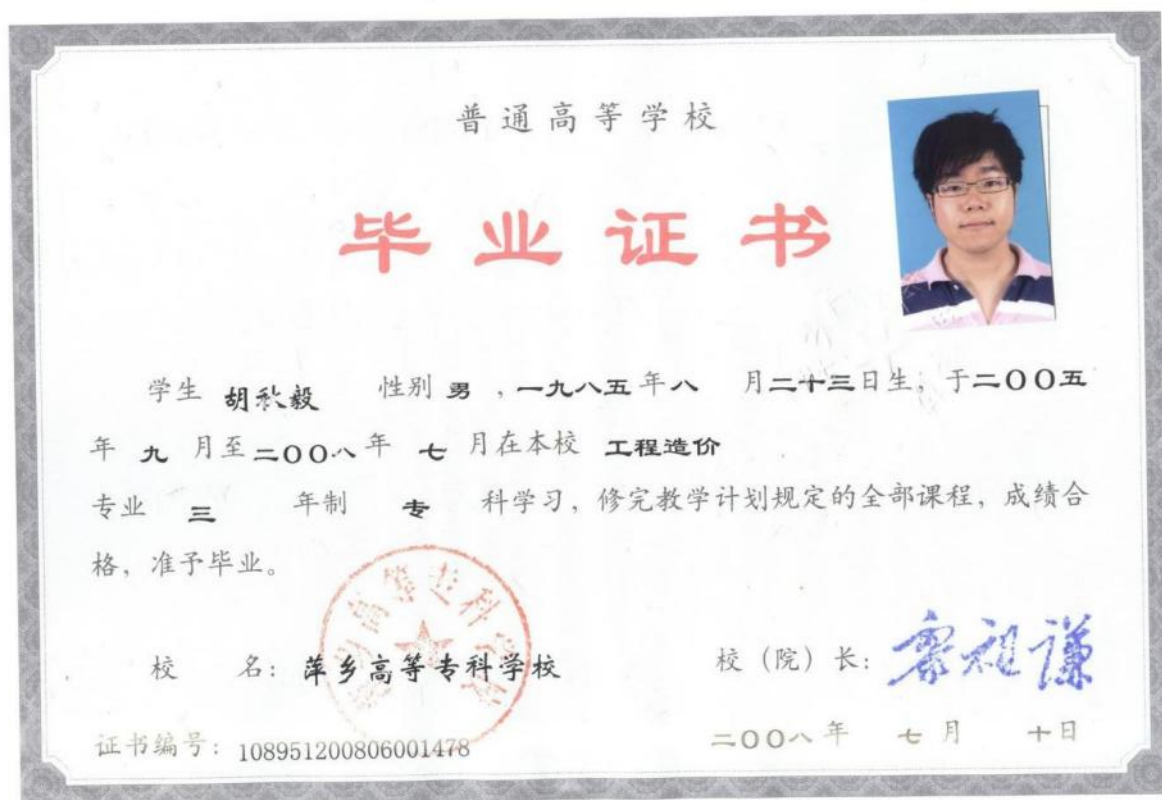 普通高等学校
毕业证书
学生 胡秋毅 性别 男 ，一九八五年八 月二十三日生，于二〇〇五
年 九 月至二〇〇八年 七 月在本校 工程造价
专业 三 年制 专 科学习，修完教学计划规定的全部课程，成绩合
格，准予毕业。
高等专科学校
校 名：萍乡高等专科学校
校（院）长：
证书编号：108951200806001478
二〇〇八年 七月 十日